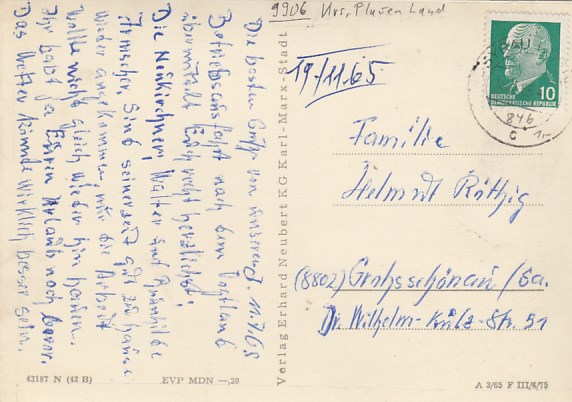 9906 Krs. Plauen Land
Die besten Grüße von unserer
Betriebsausfahrt nach dem Vogtland
übermittelt Euch recht herzlichst!
Die Neukirchner, Walter und
sind seinerzeit gut zu Hause
wieder angekommen, nur die Arbeit
wollte nicht gleich wieder hin hauen.
Ihr habt ja Euren Urlaub noch bevor.
Das Wetter könnte wirklich besser sein.
Verlag Erhard Neubert KG Karl-Marx-Stadt
19/11.65
DEUTSCHE
DEMOKRATISCHE REPUBLIK
10
846
c
Familie
Helmut Röthig
(8802) Großschönau/Sa.
Dr. Wilhelm-Külz-Str. 51
43187 N (42 B)
EVP MDN —,20
A 3/65 F III/6/75